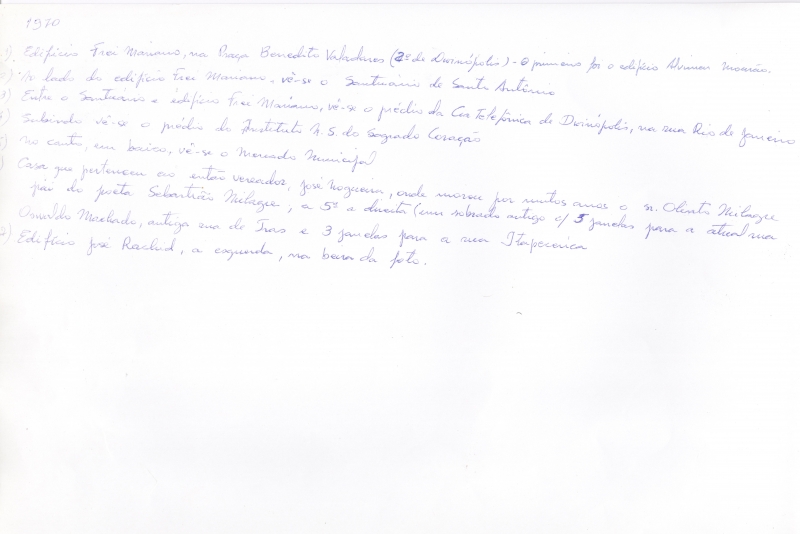 1970
1) Edifício Frei Mariano, na Praça Benedito Valadares (2º de Divinópolis) - O primeiro foi o edifício Alvimar Mourão.
) Ao lado do edifício Frei Mariano, vê-se o Santuário de Santo Antônio
3) Entre o Santuário e edifício Frei Mariano, vê-se o prédio da Cia Telefônica de Divinópolis, na rua Rio de Janeiro
) Subindo vê-se o prédio do Instituto N. S. do Sagrado Coração
) No canto, em baixo, vê-se o Mercado Municipal
) Casa que pertenceu ao então vereador, José Nogueira, onde morou por muitos anos o sr. Milagre
pai do poeta Sebastião Milagre; a 5ª a direita (um sobrado antigo c/ 5 janelas para a atual rua
Oswaldo Machado, antiga rua de Trás e 3 janelas para a rua Itapecerica
) Edifício José Rachid, a esquerda, na beira da foto.